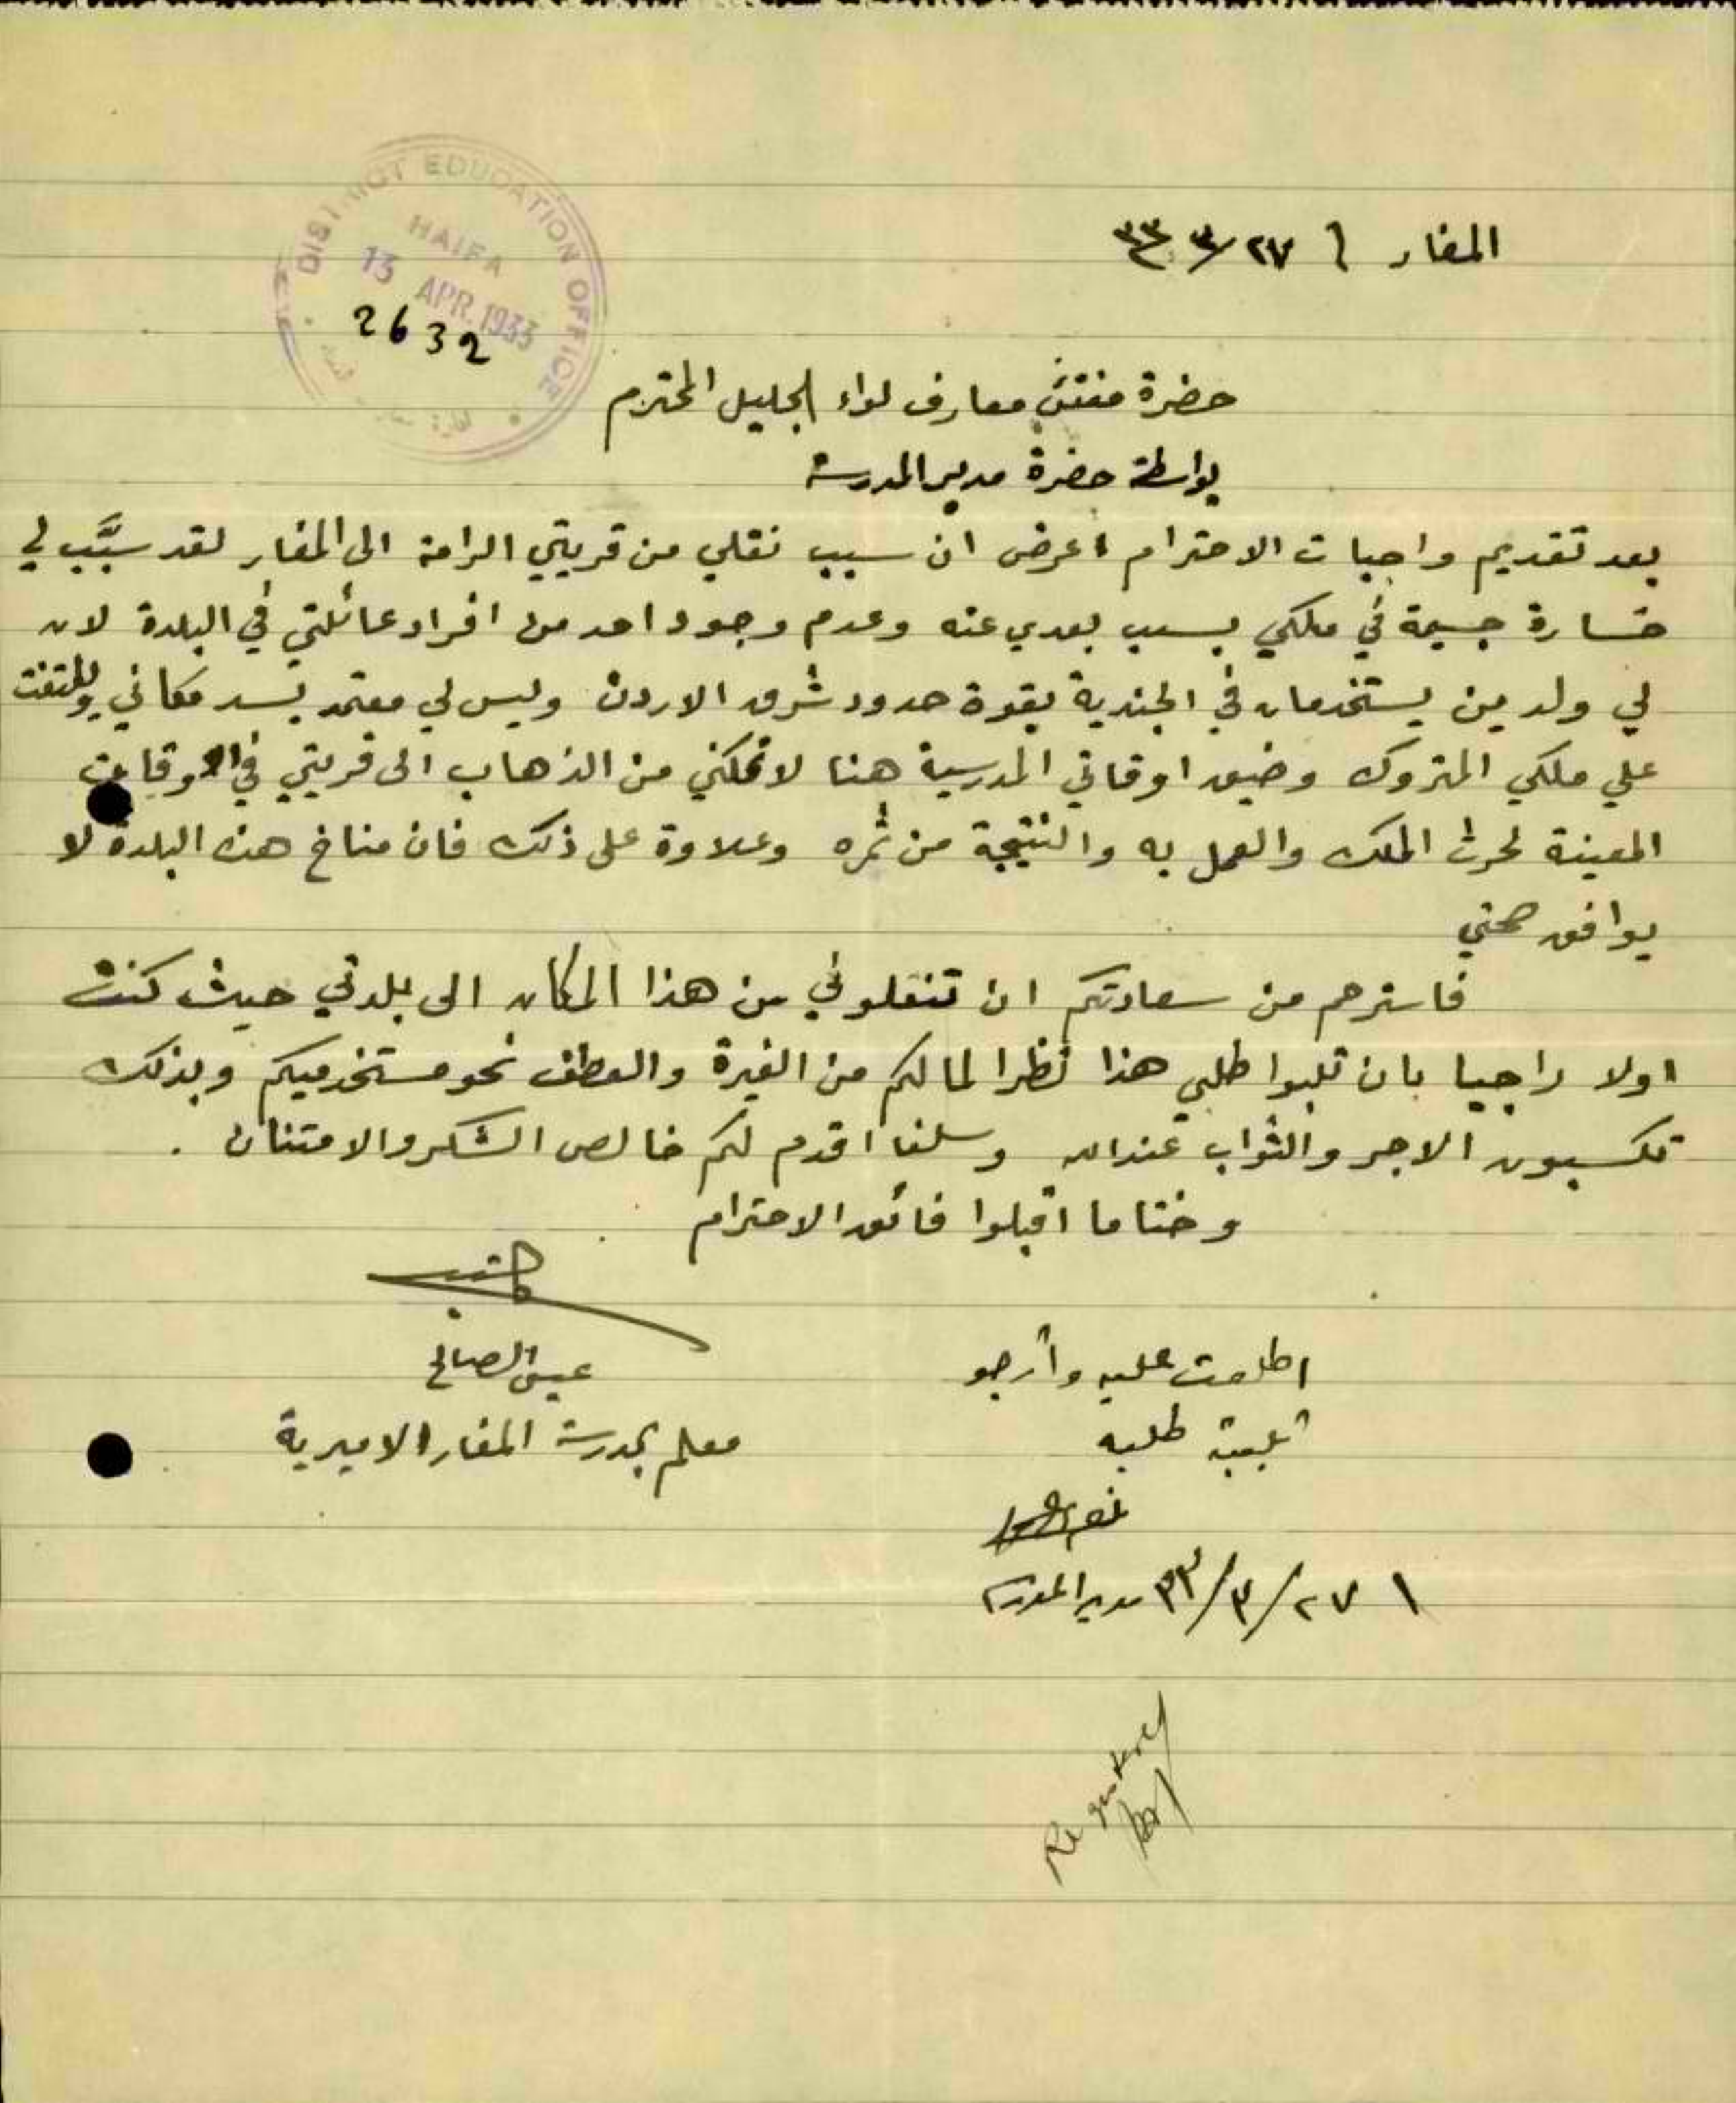 DISTRICT EDUCATION OFFICE
HAIFA
13 APR. 1933
2632
المغار في ٢٧/٣/٣٣
حضرة مفتش معارف لواء الجليل المحترم
بواسطة حضرة مدير المدرسة
بعد تقديم واجبات الاحترام اعرض ان سبب نقلي من قريتي الرامة الى المغار لقد سبَّب لي
خسارة جسيمة في ملكي بسبب بعدي عنه وعدم وجود احد من افراد عائلتي في البلدة لان
لي ولدين يستخدمان في الجندية بقوة حدود شرق الاردن وليس لي معتمد يسد مكاني ويلتفت
على ملكي المتروك وضيق اوقاتي المدرسية هنا لا تمكني من الذهاب الى قريتي في الاوقات
المعينة لحرث الملك والعمل به والنتيجة من ثمره وعلاوة على ذلك فان مناخ هذه البلدة لا
يوافق صحتي
فاسترحم من سعادتكم ان تنقلوني من هذا المكان الى بلدتي حيث كنت
اولا راجيا بان تلبوا طلبي هذا نظرا لما لكم من الغيرة والعطف نحو مستخدميكم وبذلك
تكسبون الاجر والثواب عند الله وسلفا اقدم لكم خالص الشكر والامتنان .
وختاما اقبلوا فائق الاحترام
اطلعت عليه وأرجو
تلبية طلبه
٢٧/٣/٣٣ مدير المدرسة
كاتبه
عيسى الصالح
معلم بمدرسة المغار الاميرية
Registered